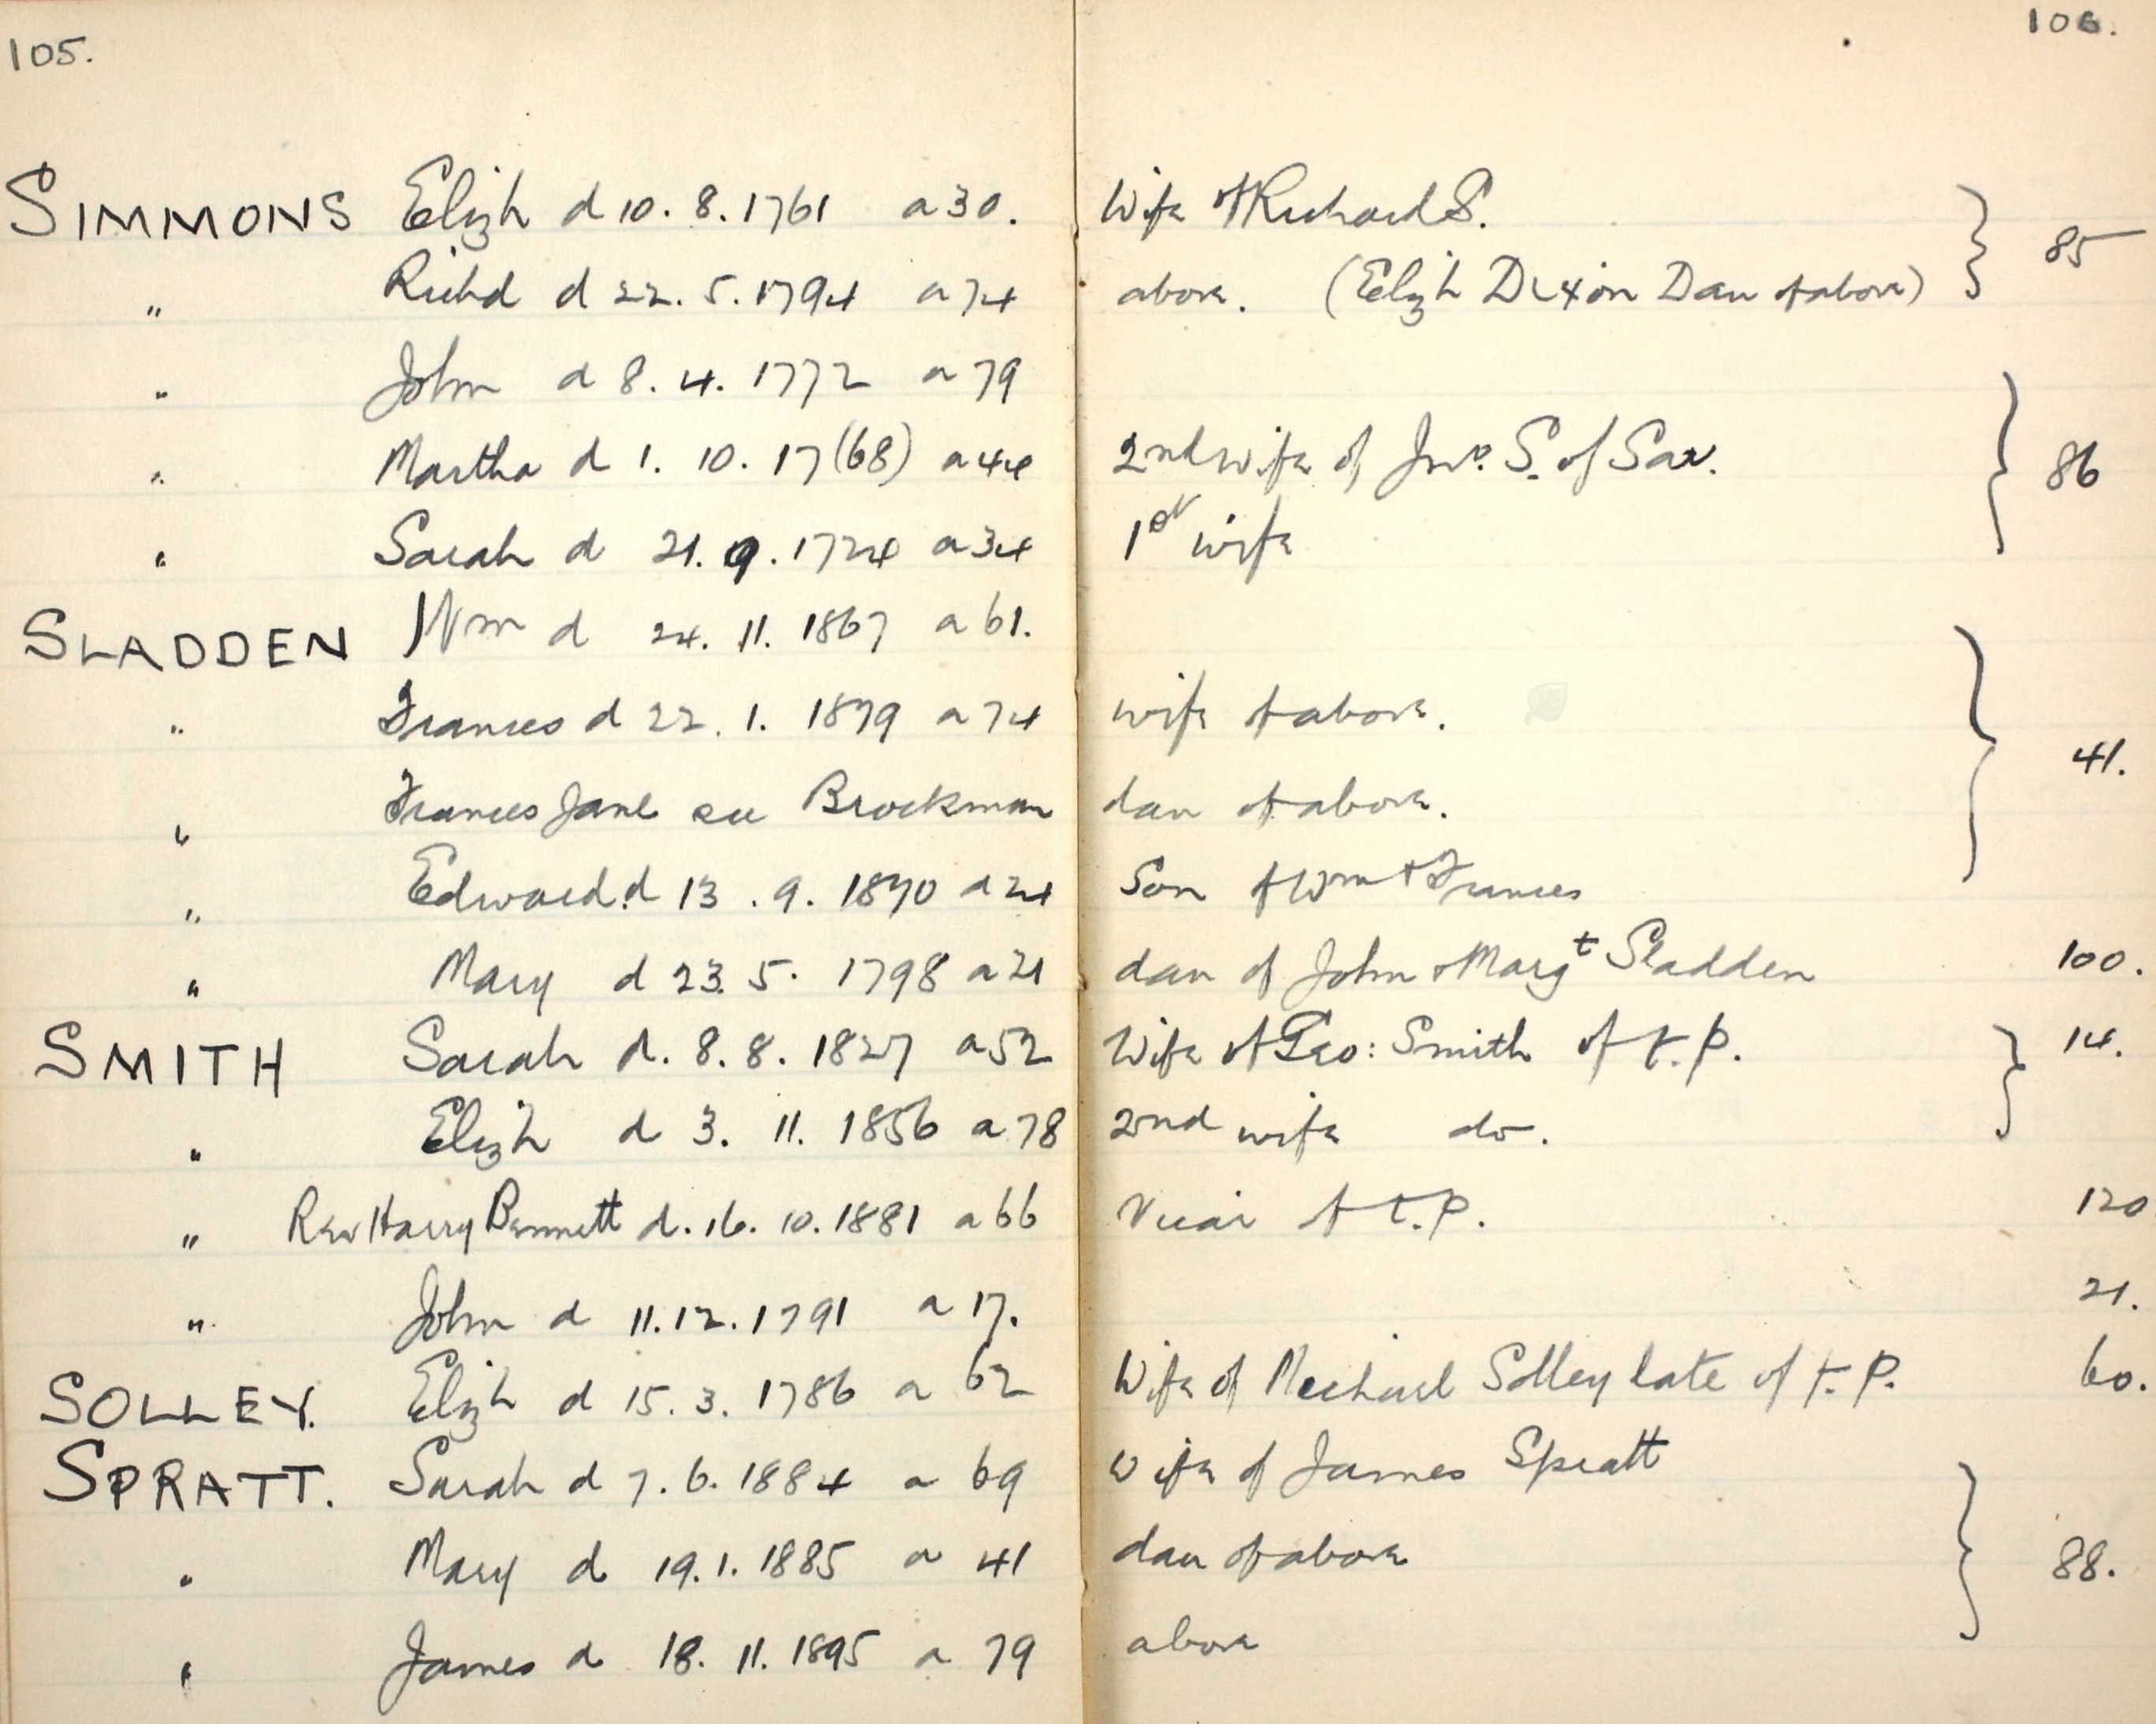 105.
106.
SIMMONS Elizh d 10. 8. 1761 a 30. Wife of Richard S.
" Richd d 22. 5. 1794 a 74 above. (Elizh Dixon Dau of above) } 85
" John d 8. 4. 1772 a 79
" Martha d 1. 10. 17(68) a 44 2nd wife of Jno. S. of Sar. } 86
" Sarah d 21. 9. 1724 a 34 1st wife
SLADDEN Wm d 24. 11. 1867 a 61.
" Frances d 22. 1. 1879 a 74 wife of above.
" Frances Jane see Brockman dau of above. } 41.
" Edward. d 13. 9. 1870 a 24 Son of Wm + Frances
" Mary d 23. 5. 1798 a 21 dau of John + Margt Sladden 100.
SMITH Sarah d. 8. 8. 1827 a 52 Wife of Geo: Smith of t. P. } 14.
" Elizh d 3. 11. 1856 a 78 2nd wife do.
" Rev Harry Bennett d. 16. 10. 1881 a 66 Vicar of t. P. 120
" John d 11. 12. 1791 a 17. 21.
SOLLEY. Elizh d 15. 3. 1786 a 62 Wife of Michael Solley late of t. P. 60.
SPRATT. Sarah d 7. 6. 1884 a 69 wife of James Spratt
" Mary d 19. 1. 1885 a 41 dau of above } 88.
" James d 18. 11. 1895 a 79 above